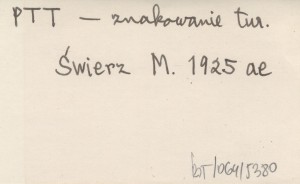 PTT — znakowanie tur.
Świerz M. 1925 ae
BT/064/5380